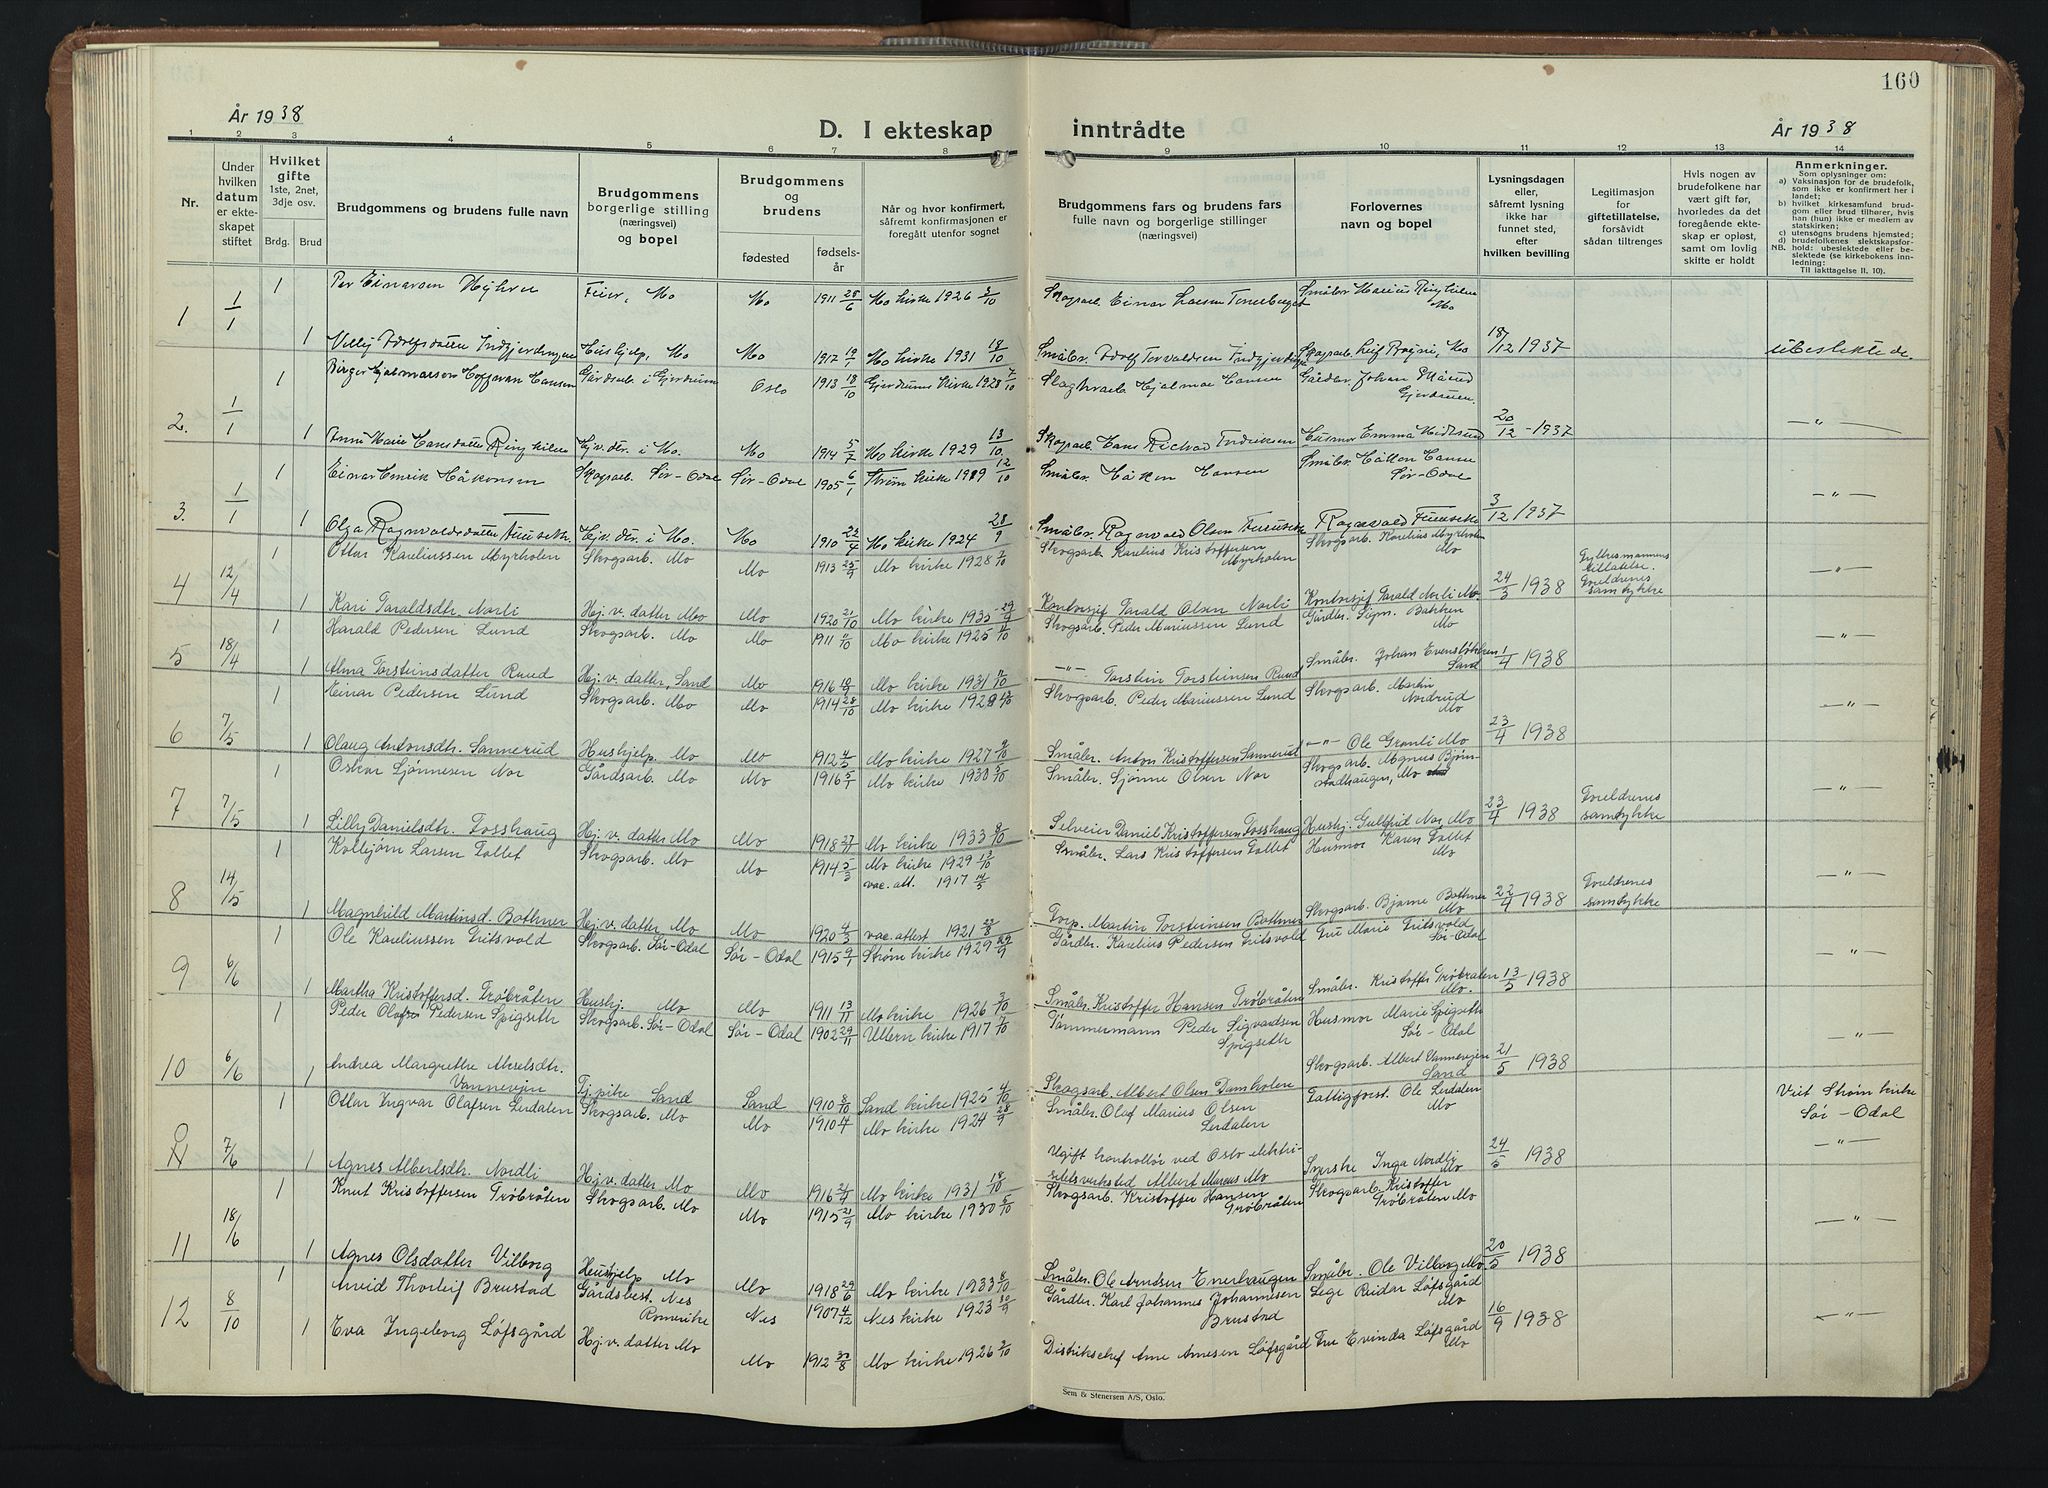 160
År 1938
D. I ekteskap inntrådte
År 1938
1 2 3 4 5 6 7 8 9 10 11 12 13 14
Nr.
Under hvilken datum er ekteskapet stiftet
Hvilket gifte 1ste, 2net, 3dje osv.
Brdg. Brud
Brudgommens og brudens fulle navn
Brudgommens borgerlige stilling (næringsvei) og bopel
Brudgommens og brudens
fødested fødselsår
Når og hvor konfirmert, såfremt konfirmasjonen er foregått utenfor sognet
Brudgommens fars og brudens fars fulle navn og borgerlige stillinger (næringsvei)
Forlovernes navn og bopel
Lysningsdagen eller, såfremt lysning ikke har funnet sted, efter hvilken bevilling
Legitimasjon for giftetillatelse, forsåvidt sådan tiltrenges
Hvis nogen av brudefolkene har vært gift før, hvorledes da det foregående ekteskap er opløst, samt om lovlig skifte er holdt
Anmerkninger.
Som oplysning om:
a) Vaksinasjon for de brudefolk, som ikke er konfirmert her i landet;
b) hvilket kirkesamfund brudgom eller brud tilhører, hvis han (hun) ikke er medlem av statskirken;
c) utensogns brudens hjemsted;
d) brudefolkenes slektskapsforhold: ubeslektede eller beslektede (se kirkebokens innledning:
NB. Til iakttagelse II. 10).
1 1/1 1 Per Einarsen Myhre Feier, Mo Mo 1911 28/6 Mo kirke 1926 3/10 Skogsarb. Einar Småbr. Marius Ringkilen Mo
1 Hushjelp, Mo Mo 1917 19/1 Mo kirke 1931 18/10 Småbr. Adolf Skogsarb. Leif Mo 18/12 1937 ubeslektede
2. 1/1 1 Birger Hjalmarson Hoffman Hansen Gårdsarb. i Gjerdrum Oslo 1913 18/10 Gjerdrum kirke 1928 7/10 Hjalmar Hansen Gårdbr. Johan Gjerdrum
1 Anne Marie Hansdatter Ringkilen Hj.v. dtr. i Mo. Mo 1914 5/7 Mo kirke 1929 13/10 Skogsarb. Hans Rickard Fredriksen Husmor Emma 20/12 - 1937 — " —
3. 1/1 1 Einar Henrik Håkonsen Skogsarb. Sør-Odal Sør-Odal 1905 6/1 Strøm kirke 1919 12/10 Småbr. Håken Hansen Småbr. Håken Hansen Sør-Odal
1 Olga Ragnvaldsdatter Furuseth Hj.v. dtr. i Mo. Mo 1910 22/4 Mo kirke 1924 28/9 Småbr. Ragnvald Olsen Furuseth Ragnvald Furuseth 3/12 1937 — " —
4 12/4 1 Ottar Kareliussen Myrholen Skogsarb. Mo Mo 1913 25/9 Mo kirke 1928 7/10 Skogsarb. Karelius Kristoffersen Myrholen Skogsarb. Karelius Myrholen Mo
1 Kari Taraldsdtr. Norli Hj.v. datter Mo Mo 1920 21/10 Mo kirke 1935 29/9 Kontorsjef Tarald Olsen Norli Kontorsjef Tarald Norli Mo. 24/3 1938 Fylkesmannens tillatelse. Foreldrenes samtykke — " —
5 18/4 1 Harald Pedersen Lund Skogsarb. Mo Mo 1911 Mo kirke 1925 Skogsarb. Peder Mariussen Lund Gårdbr. Sigm. Bakken Mo
1 Alma Torsteinsdatter Ruud Hj.v. datter, Sand Mo 1916 Mo kirke 1931 — " — Torstein Torsteinsen Ruud Småbr. Johan Sand 1/4 1938 — " —
6 7/5 1 Einar Pedersen Lund Skogsarb. Mo Mo 1914 28/10 Mo kirke 1928 Skogsarb. Peder Mariussen Lund Skogsarb. Martin Nordrud Mo
1 Olaug Antonsdtr. Sannerud Hushjelp Mo Mo 1912 4/5 Mo kirke 1927 9/10 Småbr. Anton Kristoffersen Sannerud — " — Ole Granli Mo 23/4 1938 — " —
7 7/5 1 Oskar Sjønnesen Nor Gårdsarb. Mo Mo 1916 5/1 Mo kirke 1930 5/10 Småbr. Sjønne Olsen Nor Skogsarb. Magnus Bjørnstadhaugen, Mo
1 Lilly Danielsdtr. Fosshaug Hj.v. datter Mo Mo 1918 Mo kirke 1933 8/10 Selveier Daniel Kristoffersen Fosshaug Hushj. Gullfrid Nor Mo 23/4 1938 Foreldrenes samtykke — " —
8 14/5 1 Kolbjørn Larsen Fallet Skogsarb. Mo Mo 1914 5/3 Mo kirke 1929 13/10 vac. att. 1917 14/5 Småbr. Lars Kristoffersen Fallet Husmor Karen Fallet Mo
1 Magnhild Martinsd. Bothner Hj.v. datter Mo Mo 1920 4/3 vac. attest 1921 23/8 Torp. Martin Torsteinsen Bothner Skogsarb. Bjarne Bothner Mo 22/4 1938 Foreldrenes samtykke — " —
9 6/6 1 Ole Kareliussen Fritsvold Skogsarb. Sør-Odal Sør-Odal 1915 9/1 Strøm kirke 1929 29/9 Gårdbr. Karelius Pedersen Fritsvold Fru Marie Fritsvold Sør-Odal
1 Martha Kristoffersd. Trøbråten Hushj. Mo Mo 1911 13/11 Mo kirke 1926 3/10 Småbr. Kristoffer Hansen Trøbråten Småbr. Kristoffer Trøbråten Mo. 13/5 1938 — " —
10 6/6 1 Peder Olaf Pedersen Spigseth Skogsarb. Sør-Odal Sør-Odal 1902 29/11 Ullern kirke 1917 7/10 Tømmermann Peder Sigvardsen Spigseth Husmor Marie Spigseth Sør-Odal
1 Andrea Margrethe Vannevjen Tj.pike Sand Sand 1910 8/10 Sand kirke 1925 4/10 Skogsarb. Albert Olsen Damholen Skogsarb. Albert Vannevjen Sand 21/5 1938 — " —
7/6 1 Ottar Ingvar Olafsen Lerdalen Skogsarb. Mo Mo 1910 Mo kirke 1924 28/9 Småbr. Olaf Marius Olsen Lerdalen Fattigforst. Ole Lerdalen Mo Viet Strøm kirke Sør-Odal
1 Agnes Albertsdtr. Nordli Hj.v. datter Mo Mo 1916 21/4 Mo kirke 1931 18/10 Ugift kontrollør ved Oslo elektrisitetsverksted Albert Marius Mo Syerske Inga Nordli Mo 24/5 1938 — " —
11 18/6 1 Knut Kristoffersen Trøbråten Skogsarb. Mo Mo 1915 21/9 Mo kirke 1930 5/10 Skogsarb. Kristoffer Hansen Trøbråten Skogsarb. Kristoffer Trøbråten Mo
1 Agnes Olsdatter Vilberg Hushjelp Mo Mo 1918 29/6 Mo kirke 1933 8/10 Småbr. Ole Arndsen Enerhaugen Småbr. Ole Vilberg Mo 20/5 1938 — " —
12 8/10 1 Arvid Thorleif Brustad Gårdsbest. Nes Romerike Nes 1907 4/12 Nes kirke 1923 30/9 Gårdbr. Karl Johannes Johannesen Brustad Lege Reidar Løfsgård Mo
1 Eva Ingeborg Løfsgård Hj.v. datter Mo Mo 1912 30/8 Mo kirke 1926 3/10 Distriktschef Arne Arnesen Løfsgård Fru Evinda Løfsgård Mo 16/9 1938 — " —
Sem & Stenersen A/S, Oslo.